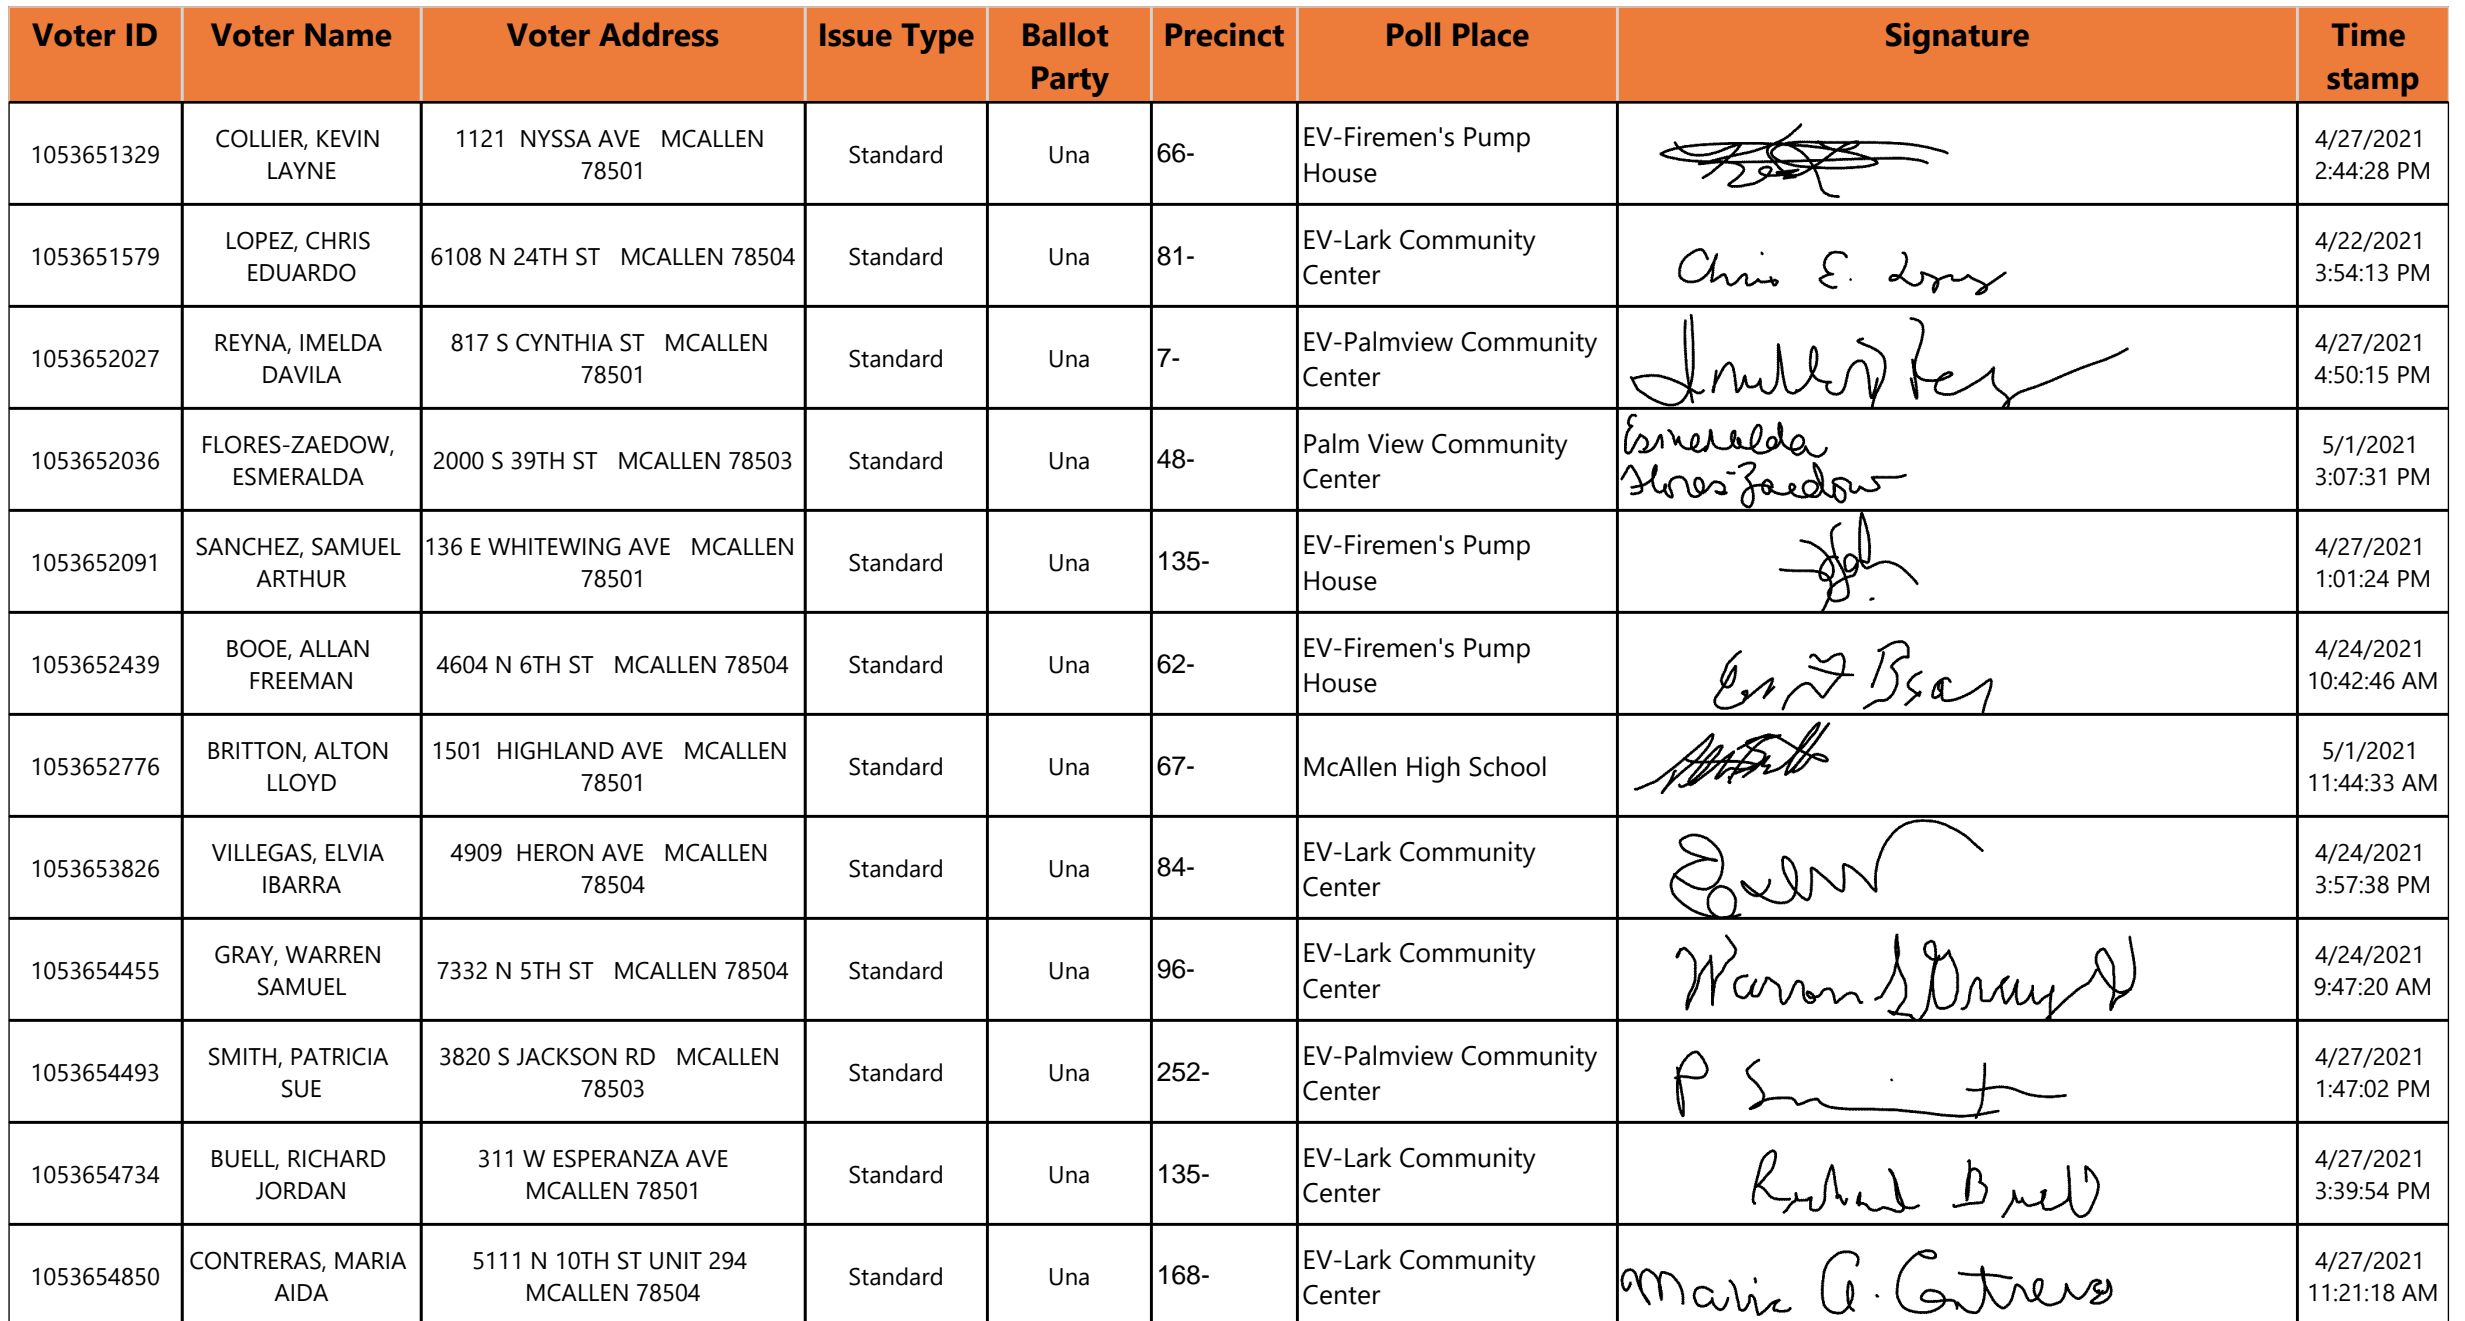 Voter ID Voter Name Voter Address Issue Type Ballot Party Precinct Poll Place Signature Time stamp
1053651329 COLLIER, KEVIN LAYNE 1121 NYSSA AVE MCALLEN 78501 Standard Una 66- EV-Firemen's Pump House 4/27/2021 2:44:28 PM
1053651579 LOPEZ, CHRIS EDUARDO 6108 N 24TH ST MCALLEN 78504 Standard Una 81- EV-Lark Community Center Chris E. Lopez 4/22/2021 3:54:13 PM
1053652027 REYNA, IMELDA DAVILA 817 S CYNTHIA ST MCALLEN 78501 Standard Una 7- EV-Palmview Community Center 4/27/2021 4:50:15 PM
1053652036 FLORES-ZAEDOW, ESMERALDA 2000 S 39TH ST MCALLEN 78503 Standard Una 48- Palm View Community Center Esmeralda Flores-Zaedow 5/1/2021 3:07:31 PM
1053652091 SANCHEZ, SAMUEL ARTHUR 136 E WHITEWING AVE MCALLEN 78501 Standard Una 135- EV-Firemen's Pump House 4/27/2021 1:01:24 PM
1053652439 BOOE, ALLAN FREEMAN 4604 N 6TH ST MCALLEN 78504 Standard Una 62- EV-Firemen's Pump House 4/24/2021 10:42:46 AM
1053652776 BRITTON, ALTON LLOYD 1501 HIGHLAND AVE MCALLEN 78501 Standard Una 67- McAllen High School 5/1/2021 11:44:33 AM
1053653826 VILLEGAS, ELVIA IBARRA 4909 HERON AVE MCALLEN 78504 Standard Una 84- EV-Lark Community Center 4/24/2021 3:57:38 PM
1053654455 GRAY, WARREN SAMUEL 7332 N 5TH ST MCALLEN 78504 Standard Una 96- EV-Lark Community Center Warren S Gray 4/24/2021 9:47:20 AM
1053654493 SMITH, PATRICIA SUE 3820 S JACKSON RD MCALLEN 78503 Standard Una 252- EV-Palmview Community Center P Smith 4/27/2021 1:47:02 PM
1053654734 BUELL, RICHARD JORDAN 311 W ESPERANZA AVE MCALLEN 78501 Standard Una 135- EV-Lark Community Center Richard Buell 4/27/2021 3:39:54 PM
1053654850 CONTRERAS, MARIA AIDA 5111 N 10TH ST UNIT 294 MCALLEN 78504 Standard Una 168- EV-Lark Community Center Maria A. Contreras 4/27/2021 11:21:18 AM